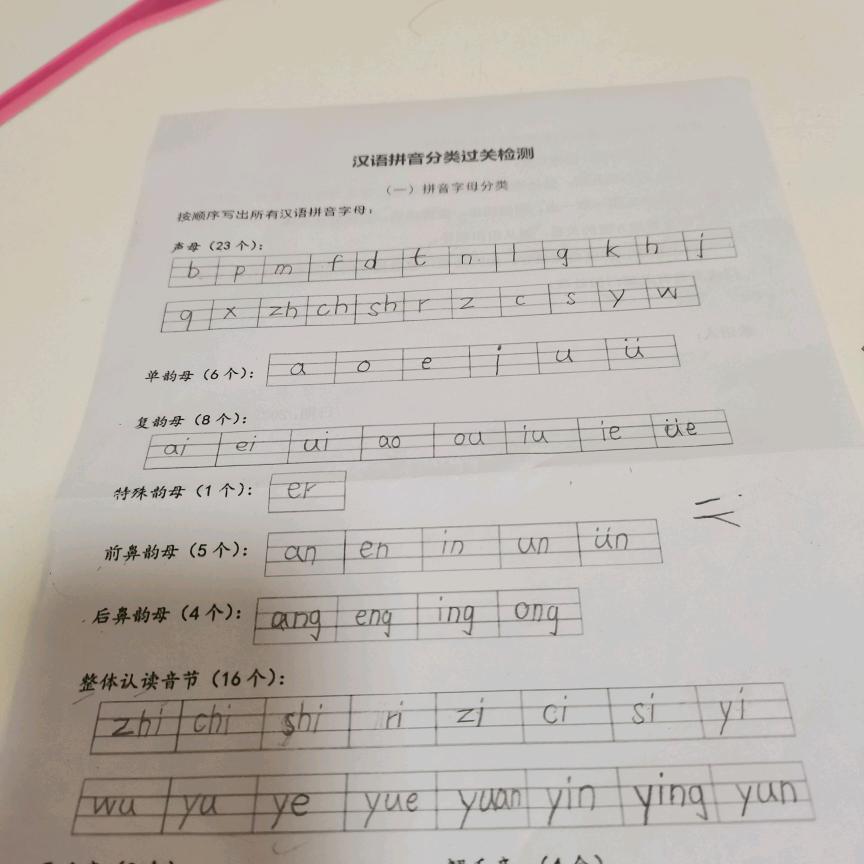 汉语拼音分类过关检测
（一）拼音字母分类
按顺序写出所有汉语拼音字母：
声母（23个）：
b p m f d t n l g k h j
q x zh ch sh r z c s y w
单韵母（6个）： a o e i u ü
复韵母（8个）：
ai ei ui ao ou iu ie üe
特殊韵母（1个）： er
前鼻韵母（5个）： an en in un ün
后鼻韵母（4个）： ang eng ing ong
整体认读音节（16个）：
zhi chi shi ri zi ci si yi
wu yu ye yue yuan yin ying yun